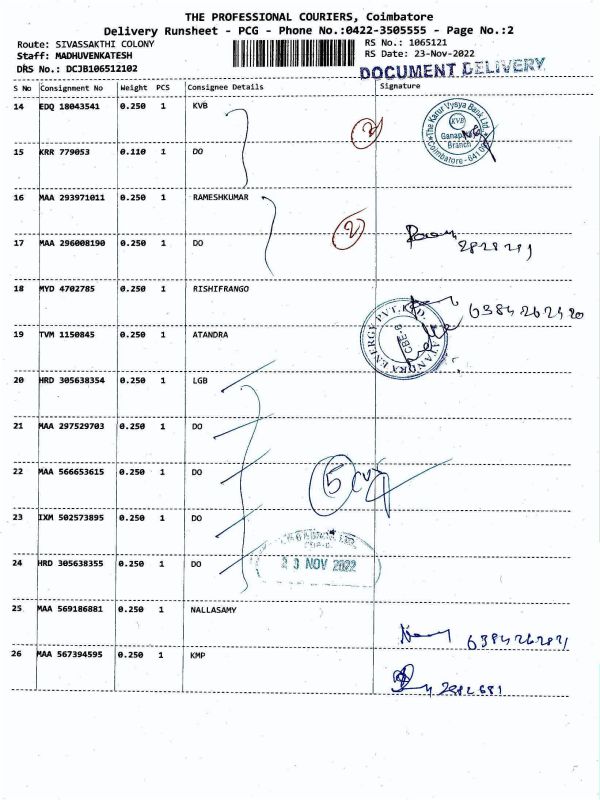 THE PROFESSIONAL COURIERS, Coimbatore
Delivery Runsheet - PCG - Phone No.:0422-3505555 - Page No.:2
Route: SIVASSAKTHI COLONY
Staff: MADHUVENKATESH
DRS No.: DCJB106512102
RS No.: 1065121
RS Date: 23-Nov-2022
DOCUMENT DELIVERY
S No Consignment No Weight PCS Consignee Details Signature
14 EDQ 18043541 0.250 1 KVB
The Karur Vysya Bank Ltd.
KVB
Branch
Coimbatore
2
15 KRR 779053 0.110 1 DO
16 MAA 293971011 0.250 1 RAMESHKUMAR
2
17 MAA 296008190 0.250 1 DO
18 MYD 4702785 0.250 1 RISHIFRANGO
19 TVM 1150845 0.250 1 ATANDRA
ATANDRA ENERGY PVT. LTD.
CBE-6
20 HRD 305638354 0.250 1 LGB
21 MAA 297529703 0.250 1 DO
22 MAA 566653615 0.250 1 DO
5
23 IXM 502573895 0.250 1 DO
24 HRD 305638355 0.250 1 DO
23 NOV 2022
25 MAA 569186881 0.250 1 NALLASAMY
26 MAA 567394595 0.250 1 KMP